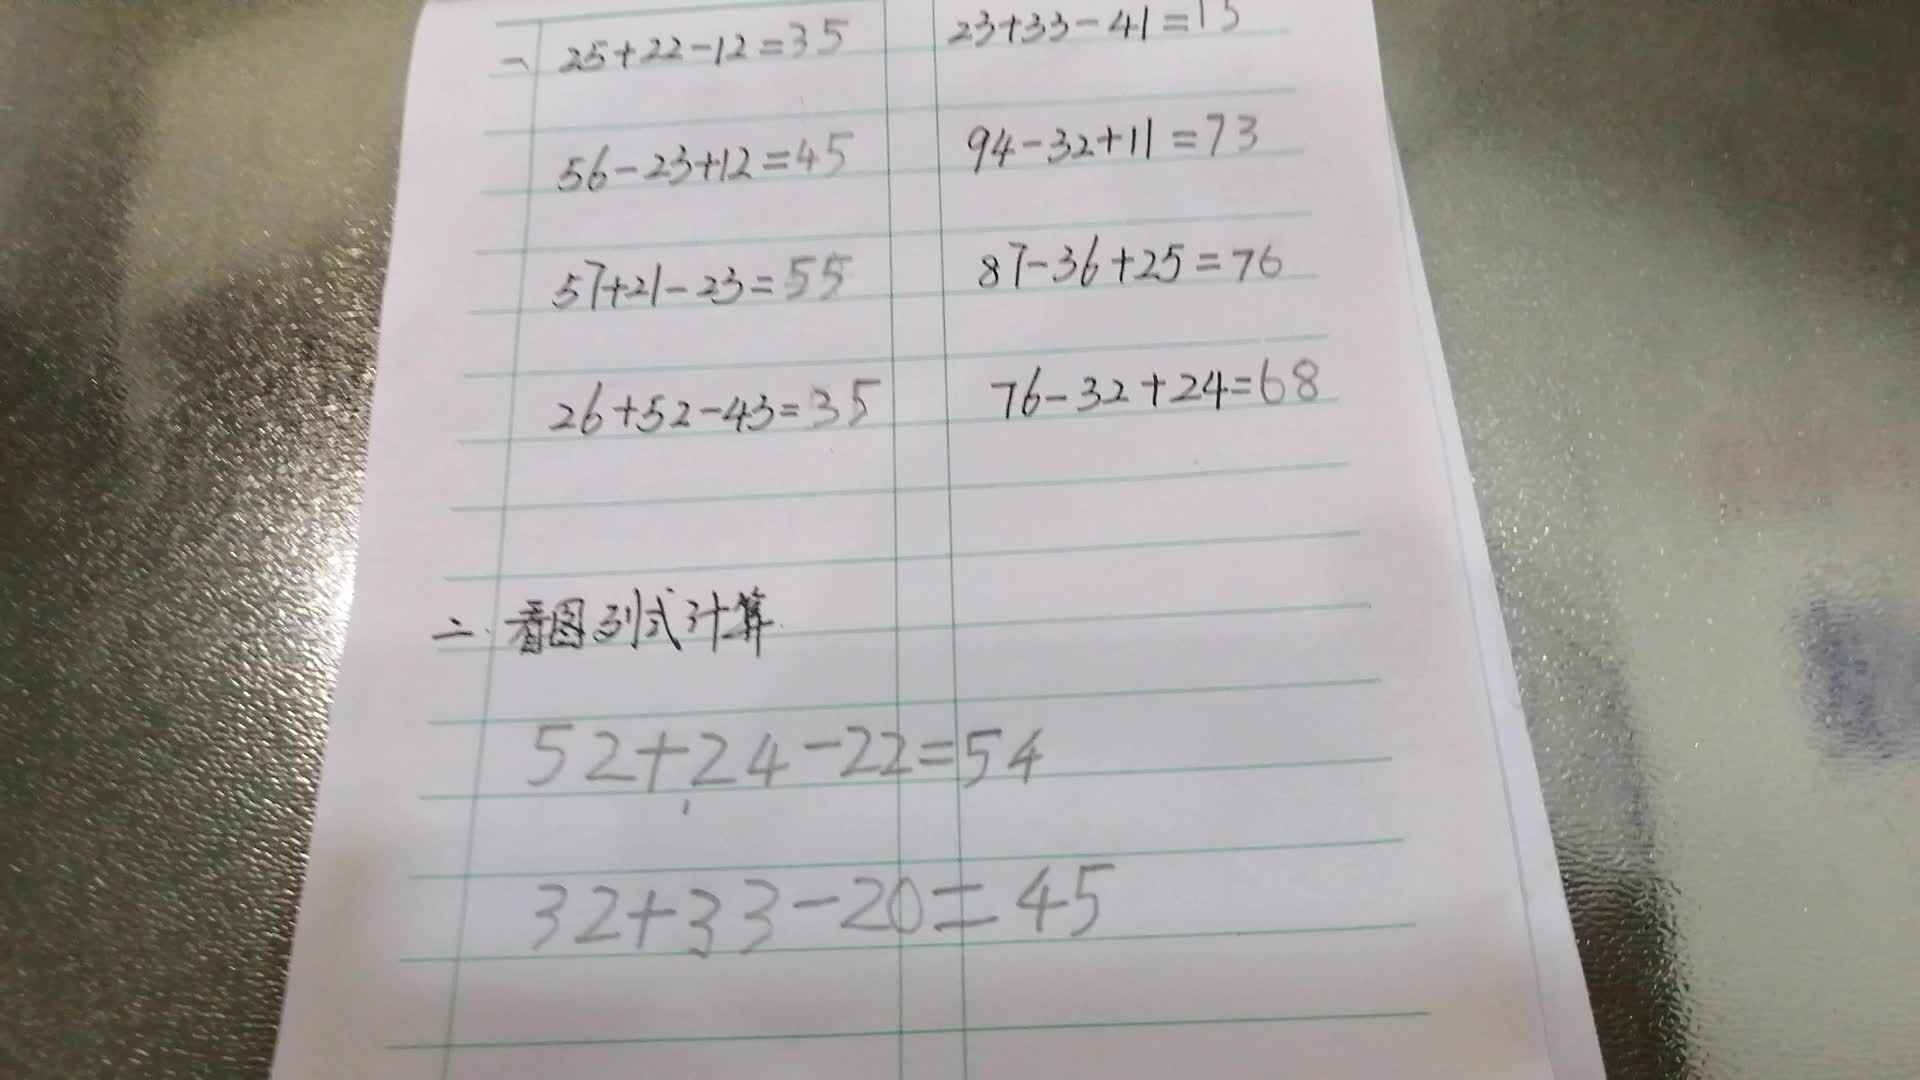 一 25+22-12=35 23+33-41=15
56-23+12=45 94-32+11=73
57+21-23=55 87-36+25=76
26+52-43=35 76-32+24=68
二.看图列式计算.
52+24-22=54
32+33-20=45